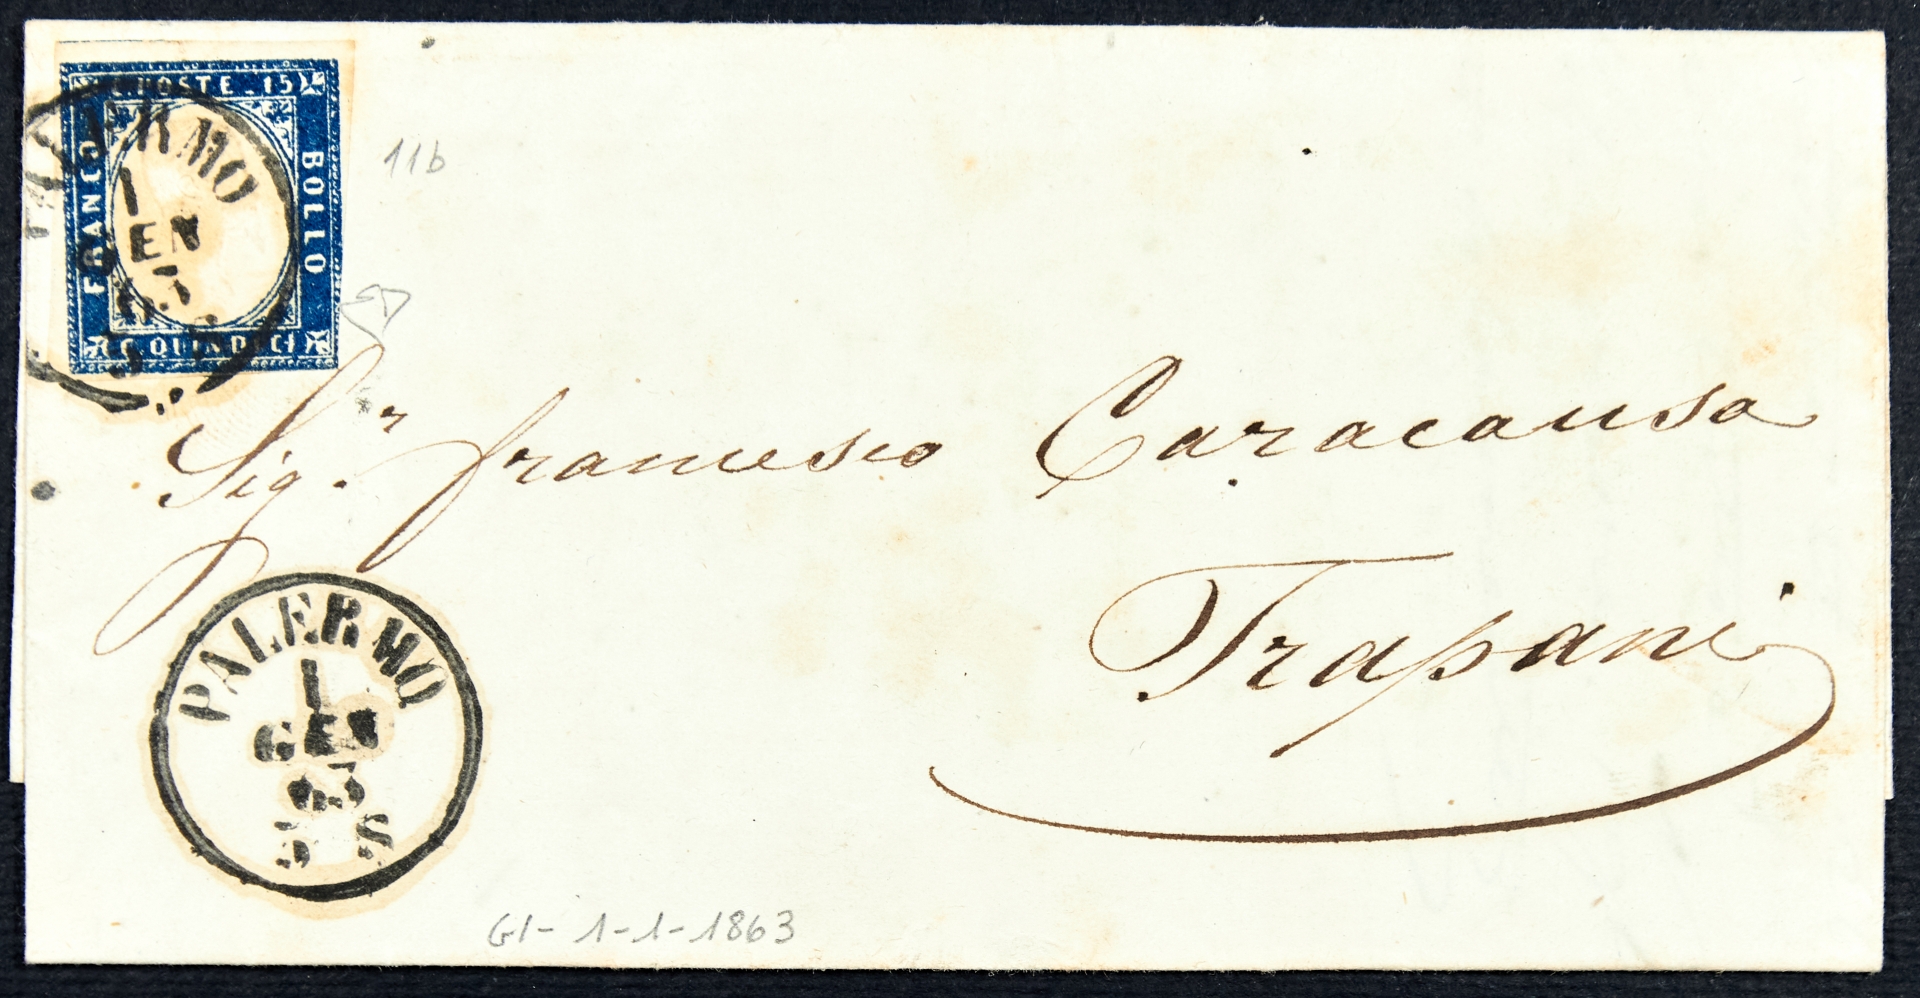 C. POSTE - 15
FRANCO
BOLLO
C. QUINDICI
PALERMO
1
GEN
63
5 S
11b
Sig.r francesco Caracausa
Trapani
PALERMO
1
GEN
63
5 S
GI - 1 - 1 - 1863